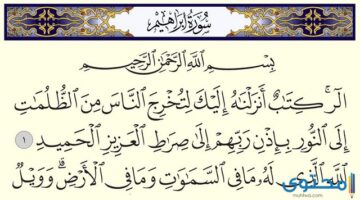 سُورَةُ إِبْرَاهِيمَ
بِسْمِ اللَّهِ الرَّحْمَٰنِ الرَّحِيمِ
الٓر ۚ كِتَٰبٌ أَنزَلْنَٰهُ إِلَيْكَ لِتُخْرِجَ النَّاسَ مِنَ الظُّلُمَٰتِ
إِلَى النُّورِ بِإِذْنِ رَبِّهِمْ إِلَىٰ صِرَٰطِ الْعَزِيزِ الْحَمِيدِ ١
اللَّهِ الَّذِي لَهُۥ مَا فِي السَّمَٰوَٰتِ وَمَا فِي الْأَرْضِ ۗ وَوَيْلٌ
محتوى